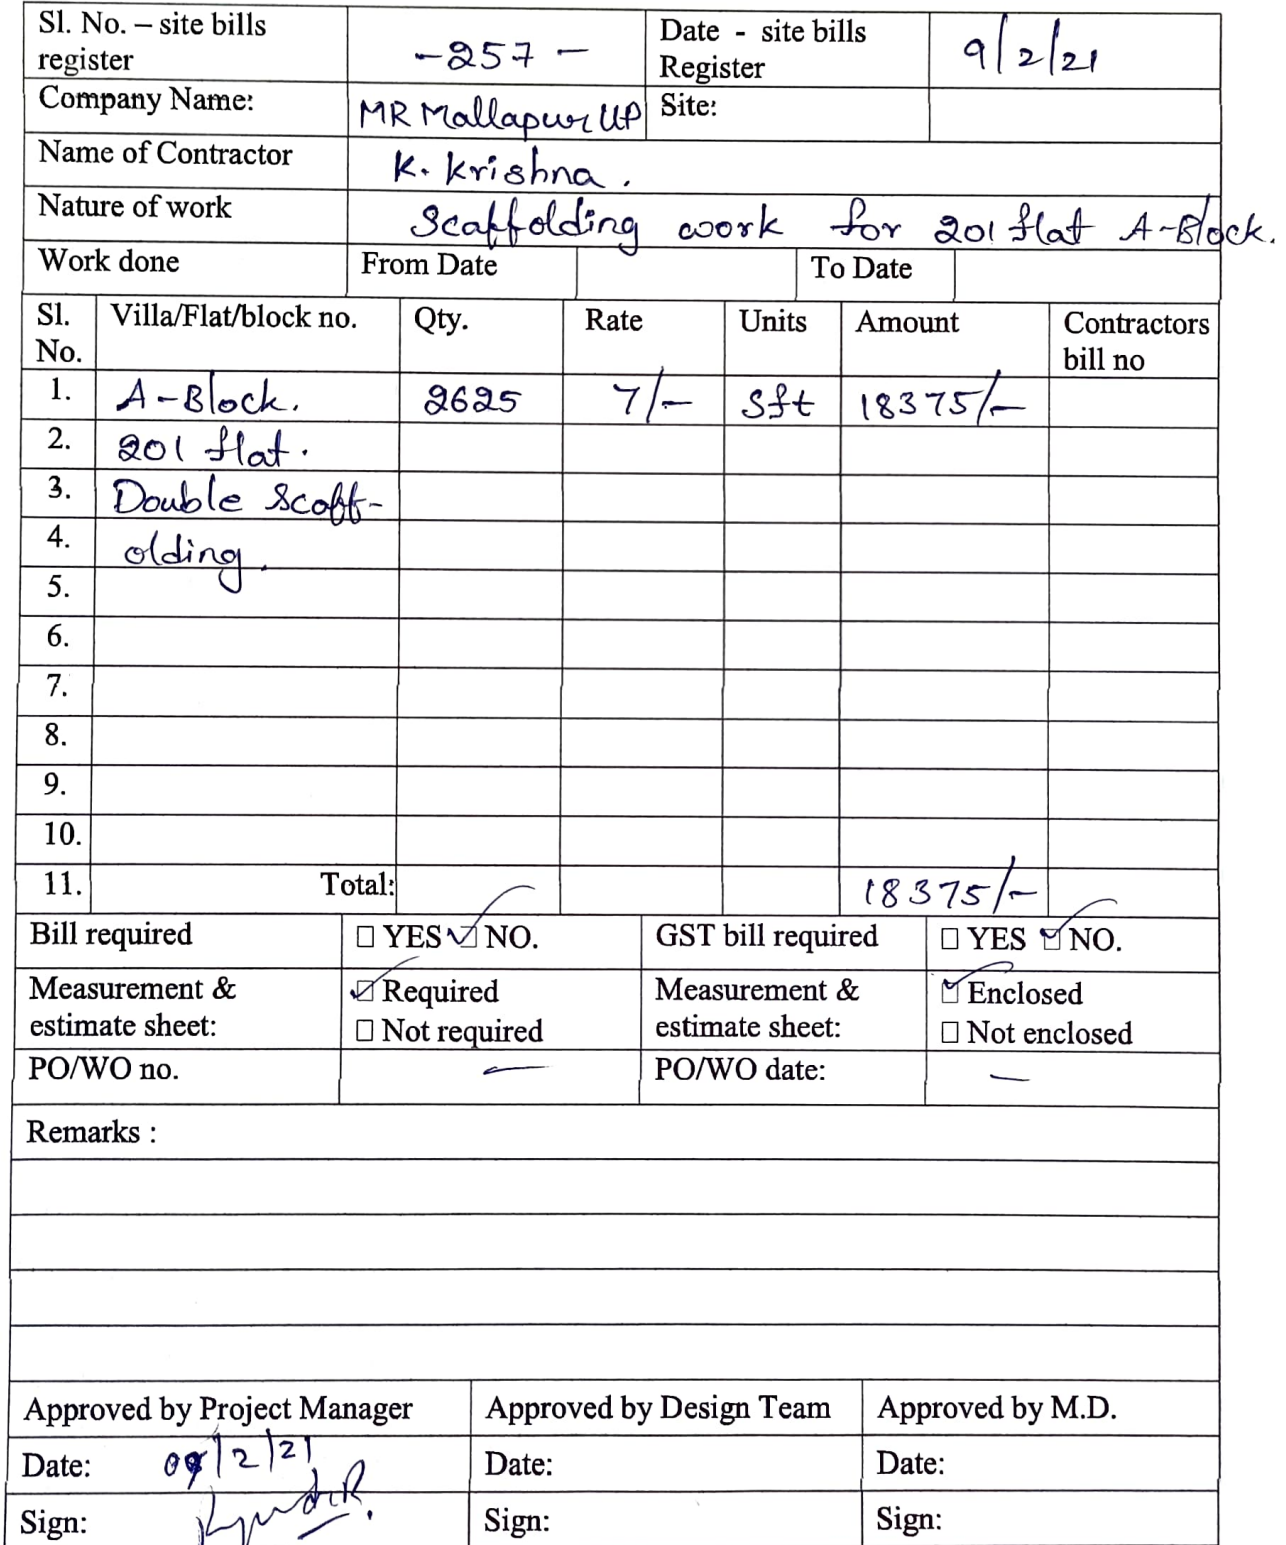 Sl. No. – site bills register -257- Date - site bills Register 9/2/21
Company Name: MR Mallapur UP Site:
Name of Contractor K. Krishna.
Nature of work Scaffolding work for 201 flat A-Block.
Work done From Date To Date
Sl. No. Villa/Flat/block no. Qty. Rate Units Amount Contractors bill no
1. A-Block. 2625 7/- Sft 18375/-
2. 201 flat.
3. Double Scaff-
4. olding.
5.
6.
7.
8.
9.
10.
11. Total: 18375/-
Bill required ☐ YES ☑ NO. GST bill required ☐ YES ☑ NO.
Measurement & estimate sheet: ☑ Required ☐ Not required Measurement & estimate sheet: ☑ Enclosed ☐ Not enclosed
PO/WO no. — PO/WO date: —
Remarks :
Approved by Project Manager Approved by Design Team Approved by M.D.
Date: 09/2/21 Date: Date:
Sign: Sign: Sign: